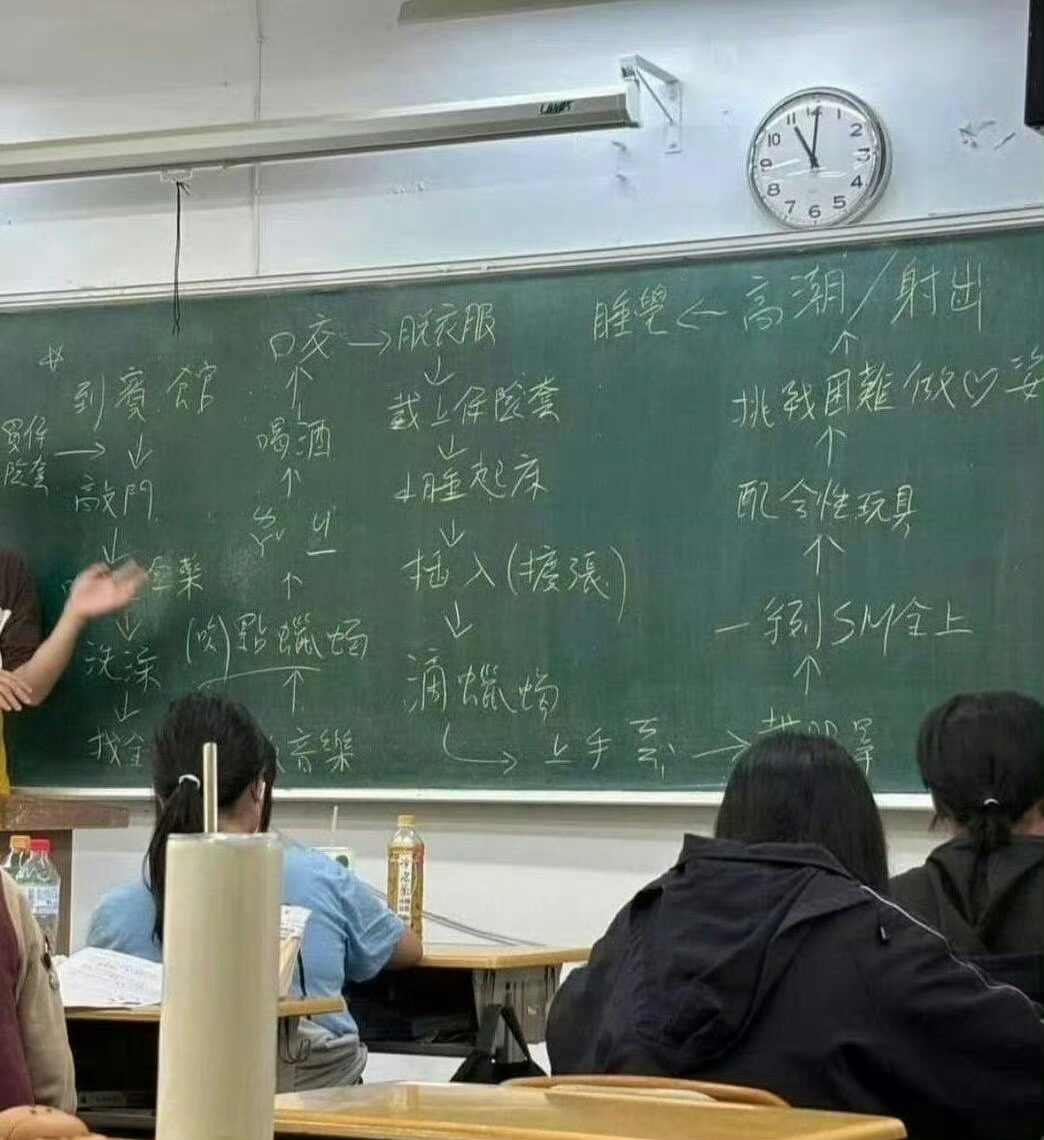 買保
險套
到賓館
敲門
洗澡
找全
音樂
(吹)點蠟燭
喝酒
口交→脫衣服
戴上保險套
睡起床
插入(擴張)
滴蠟燭
上手
一系列SM全上
配合性玩具
挑戰困難做♡姿
睡覺←高潮/射出
12
1
2
3
4
5
6
7
8
9
10
11